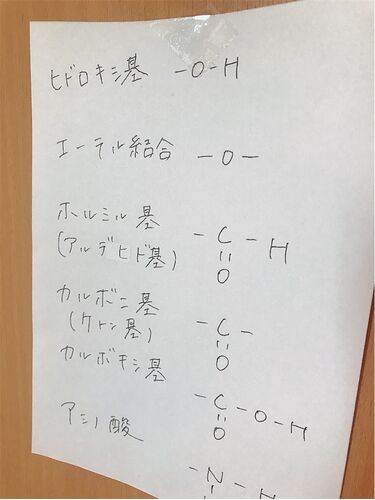 ヒドロキシ基 -O-H
エーテル結合 -O-
ホルミル基
(アルデヒド基) -C-H
=
O
カルボニ基
(ケトン基) -C-
=
O
カルボキシ基
-C-O-H
=
O
アミノ酸
-N-H